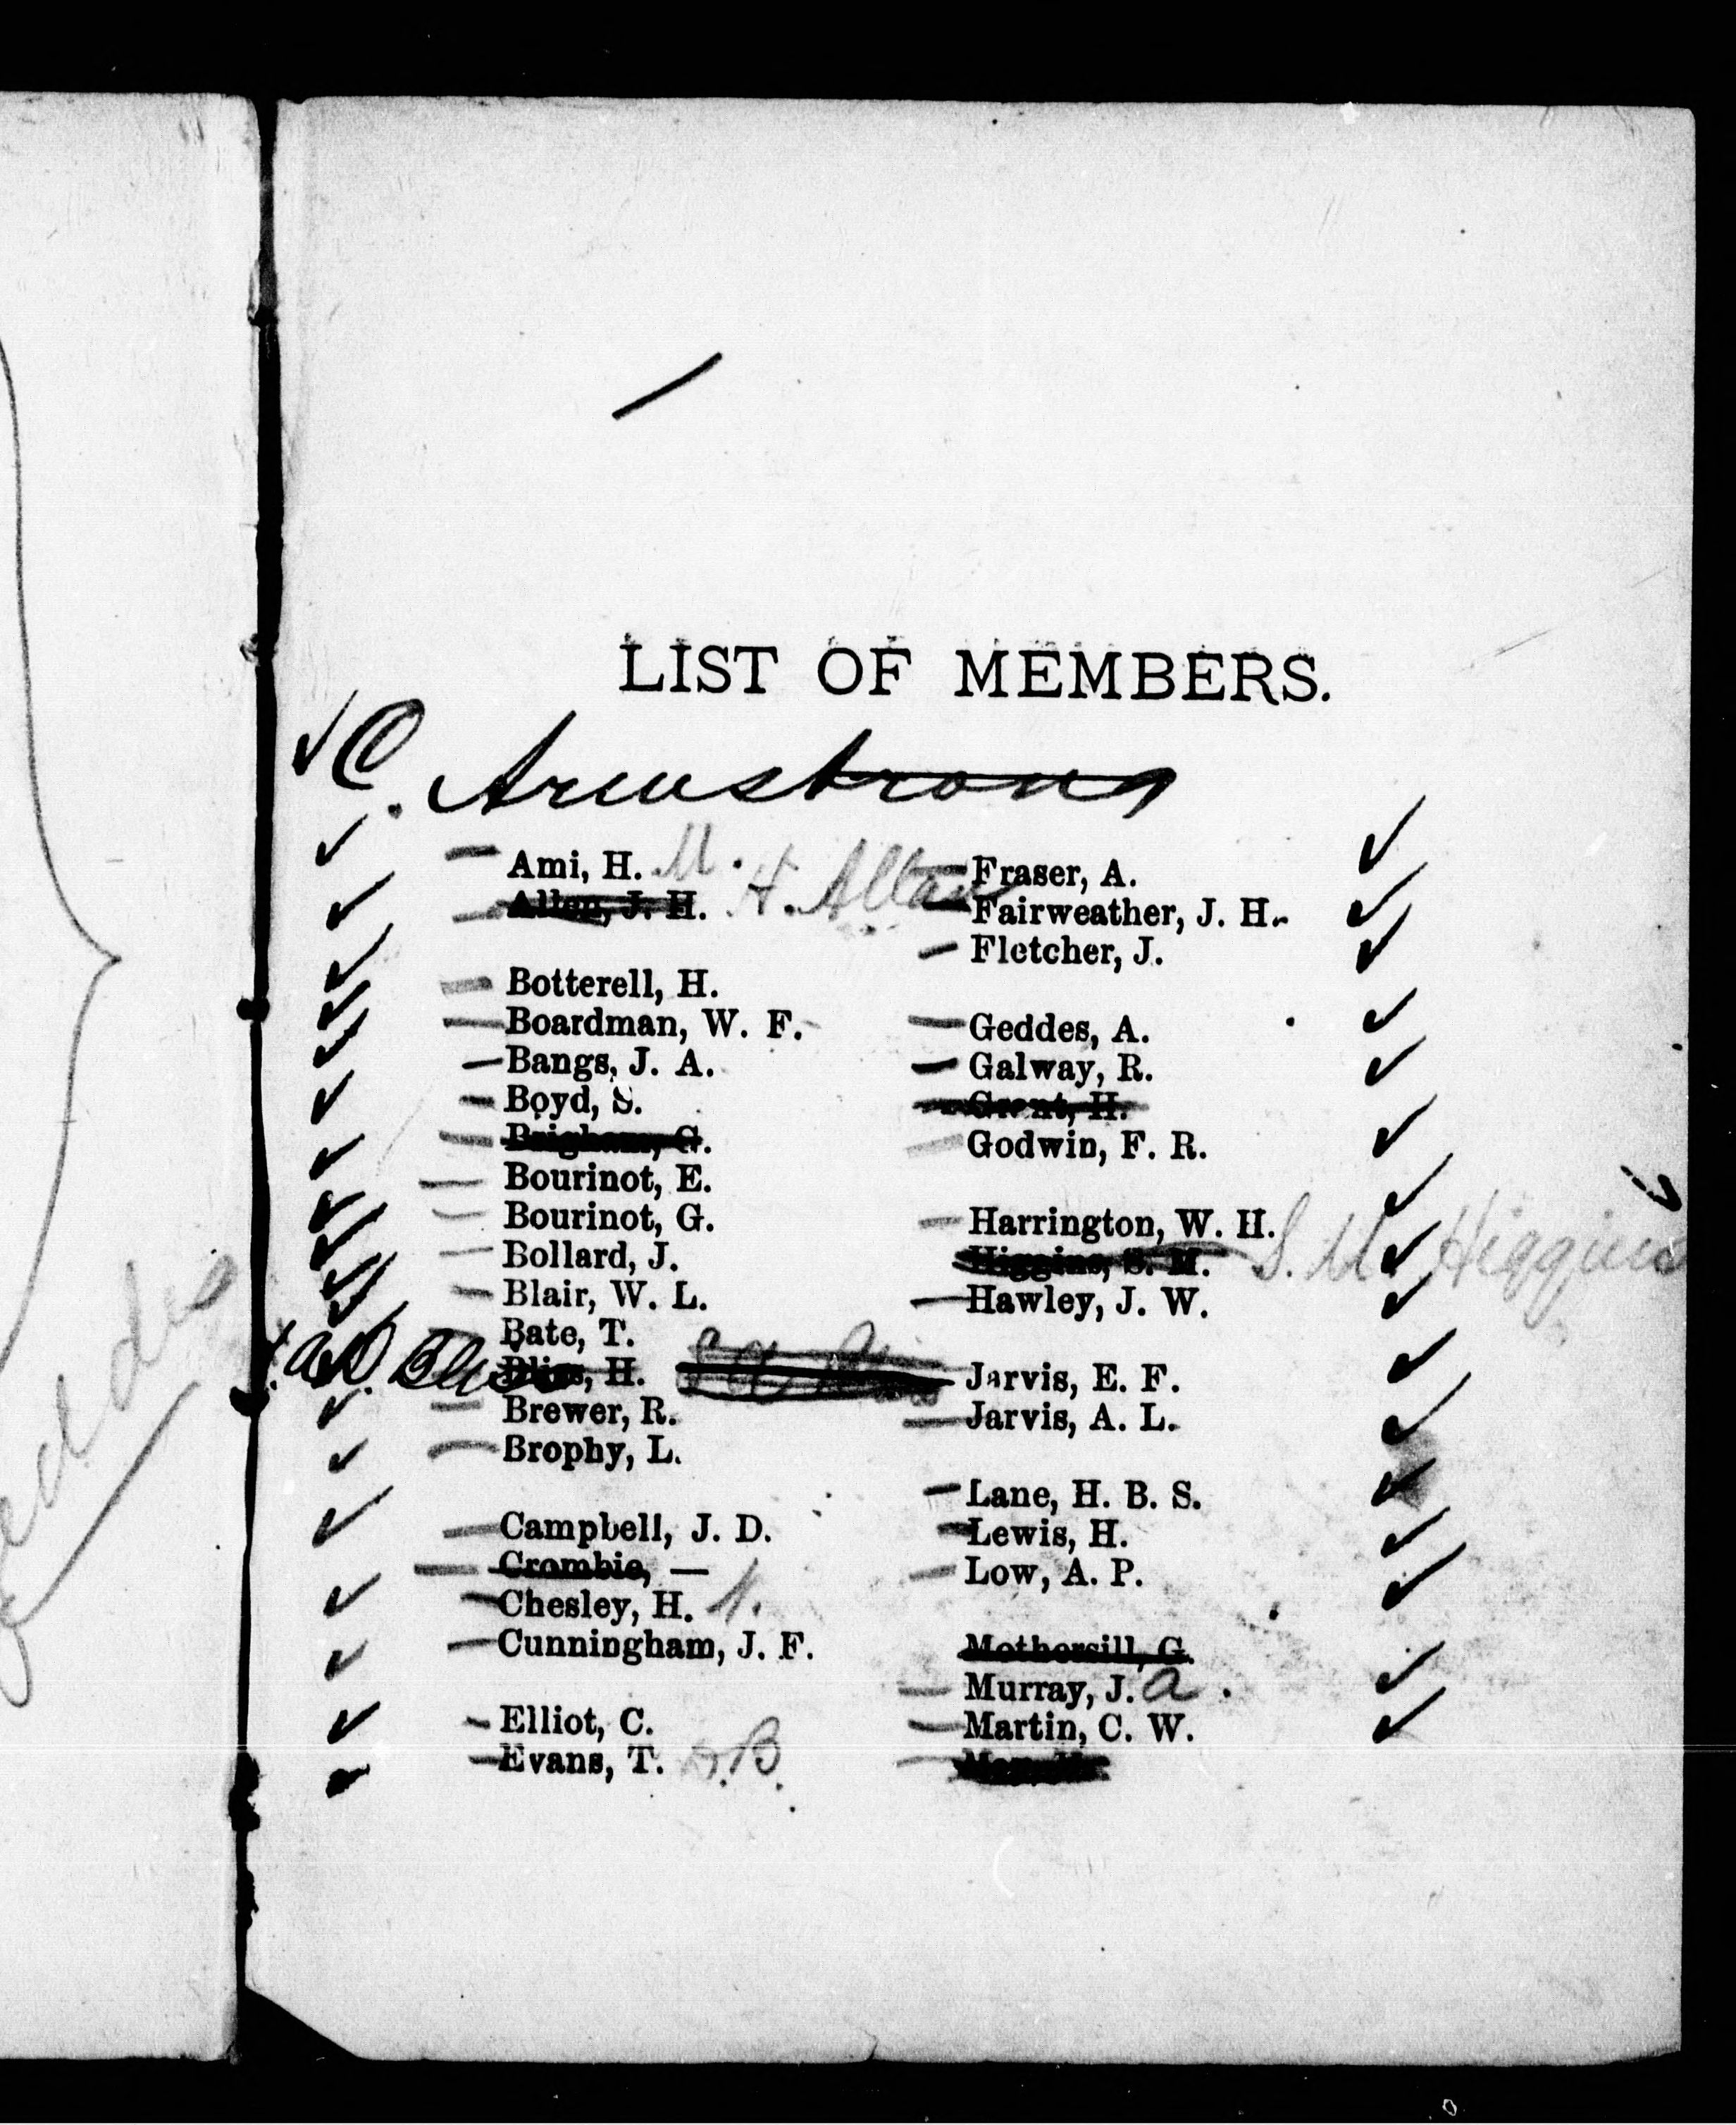 LIST OF MEMBERS.
C. Armstrong
Ami, H. M.
Allen, J. H. H. Allan
Botterell, H.
Boardman, W. F.
Bangs, J. A.
Boyd, S.
Brigham, G.
Bourinot, E.
Bourinot, G.
Bollard, J.
Blair, W. L.
Bate, T.
Bliss, H.
Brewer, R.
Brophy, L.
Campbell, J. D.
Crombie, —
Chesley, H.
Cunningham, J. F.
Elliot, C.
Evans, T. B.
Fraser, A.
Fairweather, J. H.
Fletcher, J.
Geddes, A.
Galway, R.
Grant, H.
Godwin, F. R.
Harrington, W. H.
Higgins, S. M. S. M. Higgins
Hawley, J. W.
Jarvis, E. F.
Jarvis, A. L.
Lane, H. B. S.
Lewis, H.
Low, A. P.
Mothersill, G.
Murray, J. a.
Martin, C. W.